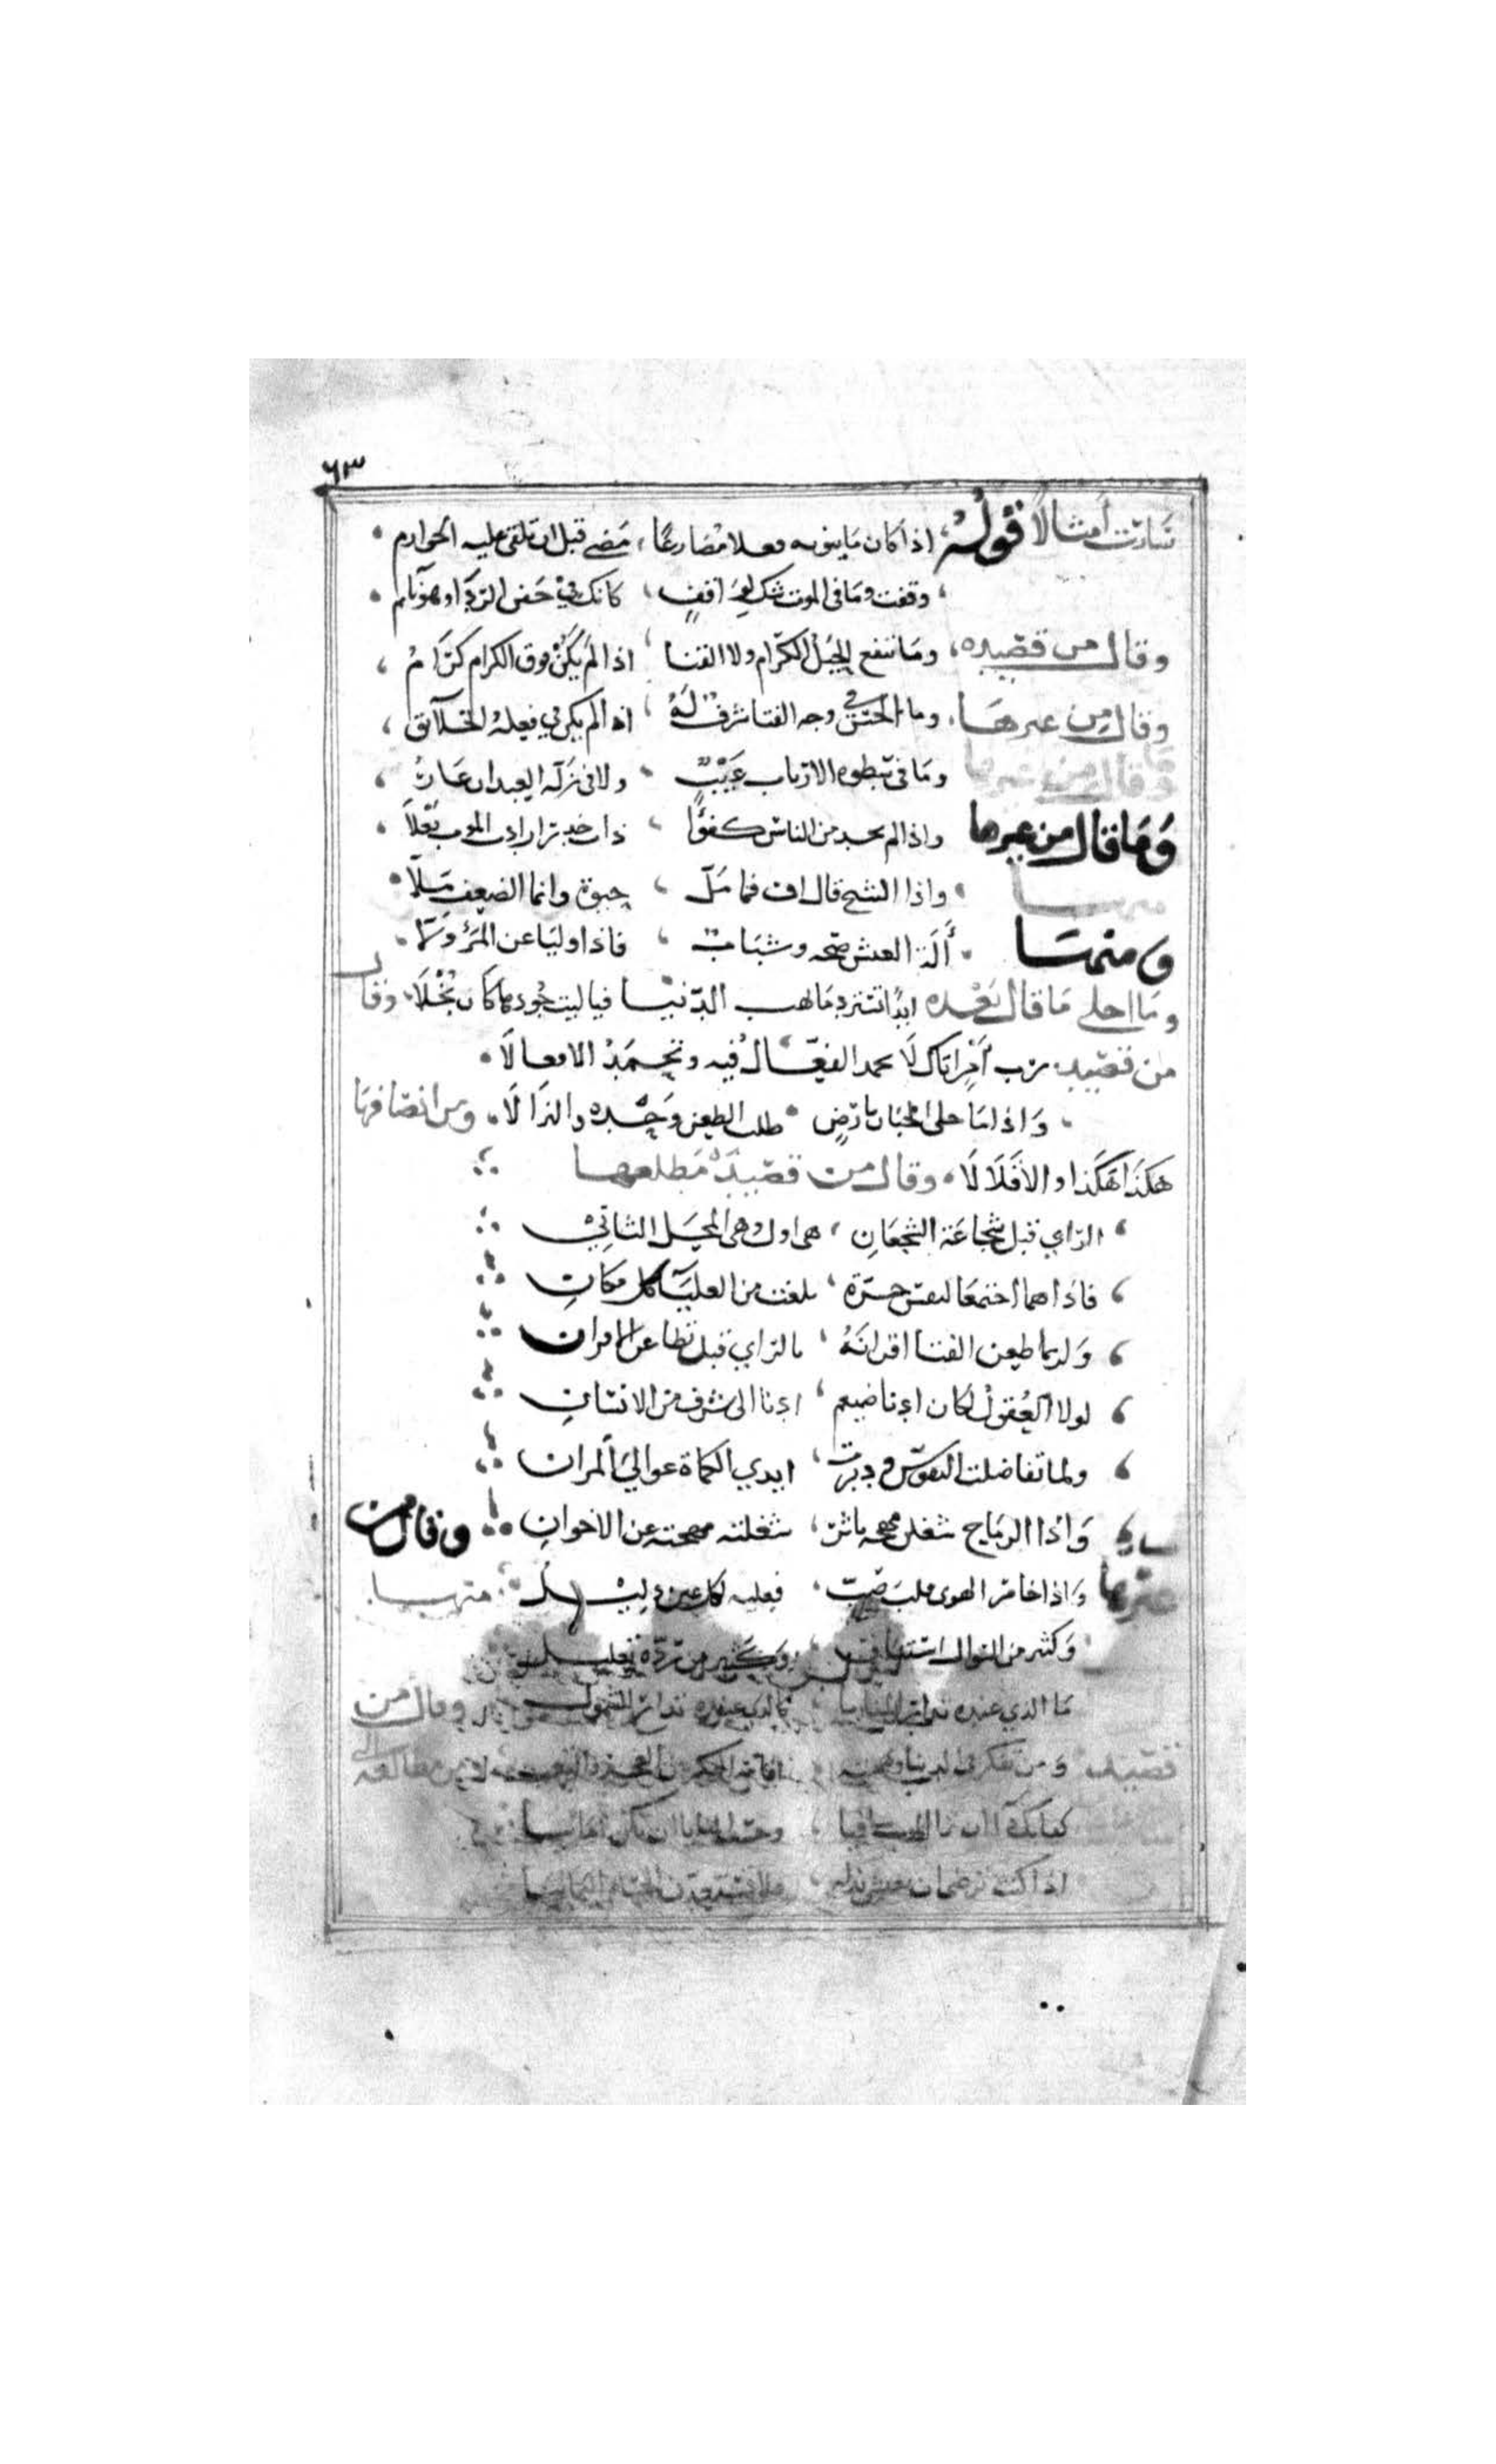 ٦٣
سارت أمثالا قوله، اذا كان ما ينويه فعلا مضارعًا، مضى قبل ان تلقى عليه الجوازم
وقفت وما فى الموت شك لواقفٍ، كانك في جفن الردَى وهو نايم
وقال من قصيده، وما تنفع الخيل الكرام ولا القنا، اذا لم يكن فوق الكرام كرَّامُ،
وقال من غيرها، وما الحسن في وجه الفتا شرفٌ لهُ، اذا لم يكن في فعله الخلآئق،
وقال من غيرها وما فى سطوه الارباب عَيْبٌ، ولا فى ذلة العبدان عارُ،
وَمَا قال من غيرها واذا لم تجد من الناس كفؤًا، ذات خدر ارادت الموت بَعْلاً،
واذا الشيخ قال اف فما مَلَّ، حيوة وانما الضعف مَلّا
ومنها أَلَة العيش صحه وشبابٌ، فاذا وليا عن المَرْءِ وَلّا
وما احلى مَا قال بَعْده ابدًا تسترد مَا تهب الدّنيَا فيا ليت جُودها كان بُخْلاَ، وقال
من قصيده رب أَمْرٍ اتاك لَا تحمد الفعّالُ فيه وتحمَدُ الافعالَا
وَاذا مَا خلى الجبان بارْضٍ طلب الطعن وَحْده والنزالَا، ومن انصافها
هكذا هكذا والا فلَا لَا، وقال من قصيدة مَطلعها
الراي قبل شجاعَة الشجعَانِ، هى اول وهى المحَل الثاني
فاذا هما اجتمعَا لنفس حرّة، بلغت من العليآء كل مكانِ
وَلربما طعن الفتا اقرانَهُ، بالراي قبل تطاعن الاقران
لولا العُقولُ لكان ادنا ضيغم، ادنا الى شرف من الانسَانِ
ولما تفاضلت النفوس ودبرت، ايدي الكماة عوالي المران
وَاذا الرماح شغلن مهجه ثائر، شغلته مهجته عن الاخوانِ وقال من
غيرها وَاذا خامر الهوى قلبَ صَبّ، فعليه لكل عين دليْلُ منها
وَكثير من السوال اشتياق، وَكثير من ردّه تعليل
مَا الذي عنده تدار المنايا، كالذي عنده تدار الشمول وقال من
قصيده وَمن تفكر فى الدنيا ومهجته
كفا بك دآ ان ترا الموت شافيا، وحسب المنايا ان يكن امانيا
اذا كنت ترضى ان تعيش بذله، فلا تستعدن الحسام اليمانيا